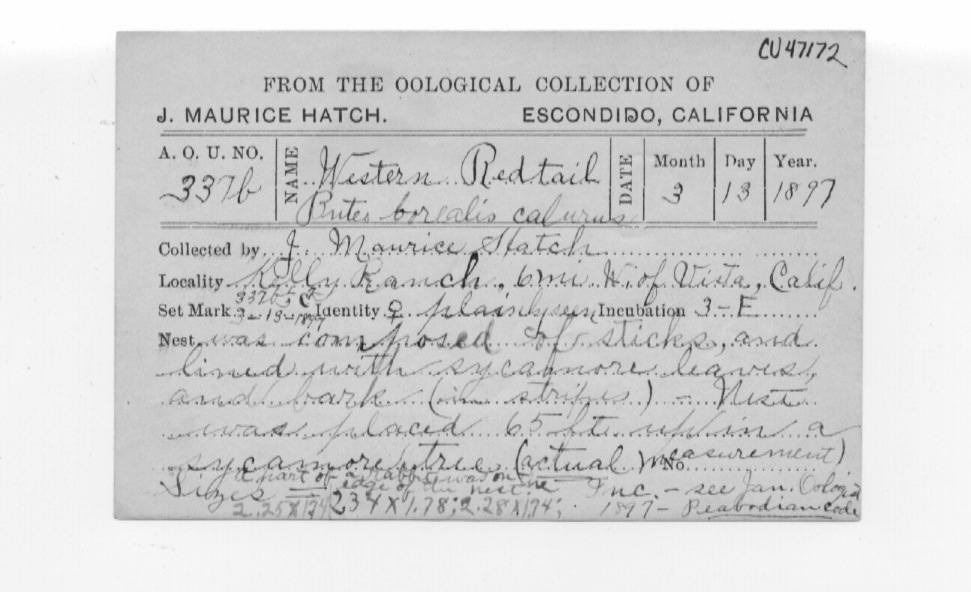 CU47172
FROM THE OOLOGICAL COLLECTION OF
J. MAURICE HATCH. ESCONDIDO, CALIFORNIA
A. O. U. NO. NAME Western Redtail DATE Month Day Year.
337b 3 13 1897
Buteo borealis calurus
Collected by J. Maurice Hatch
Locality Kelly Ranch, 6 mi. W. of Vista, Calif.
Set Mark 3-13-1897 Identity ♀ plainly seen Incubation 3-E
Nest was composed of sticks, and
lined with sycamore leaves,
and bark (in strips) - Nest
was placed 65 ft. up in a
sycamore tree (actual measurement)
No.
a part of a rabbit was on
edge of the nest.
Sizes Inc. - see Jan. Oologist
2.25 X 1.34 2.34 X 1.78; 2.28 X 1.74; 1897 - Peabodian code